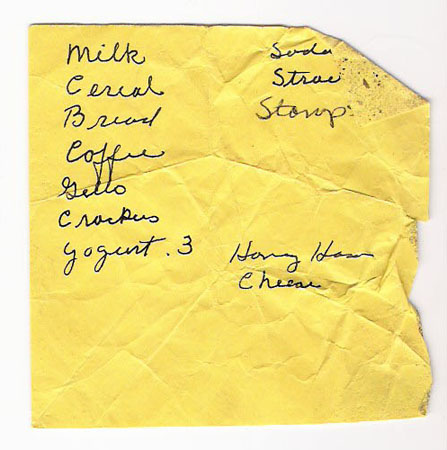 Milk
Cereal
Bread
Coffee
Gello
Crackers
Yogurt . 3
Soda
Stamp
Honey Ham
Cheese